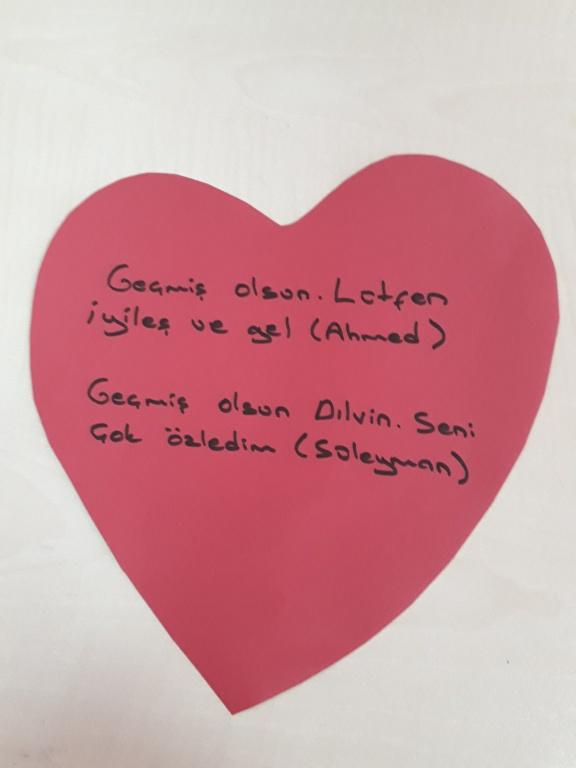 Geçmiş olsun. Lütfen
iyileş ve gel (Ahmed)
Geçmiş olsun Dilvin. Seni
çok özledim (Süleyman)